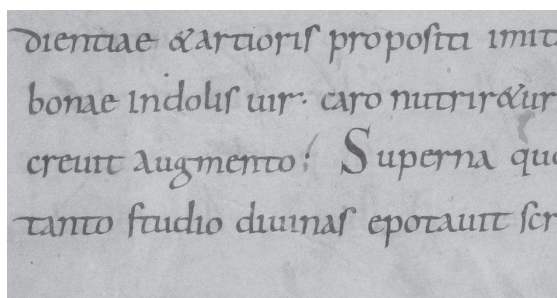 dientiae &artioris propositi imit
bonae indolis uir· caro nutrir&ur
creuit augmento; Superna quo
tanto studio diuinas epotauit scr